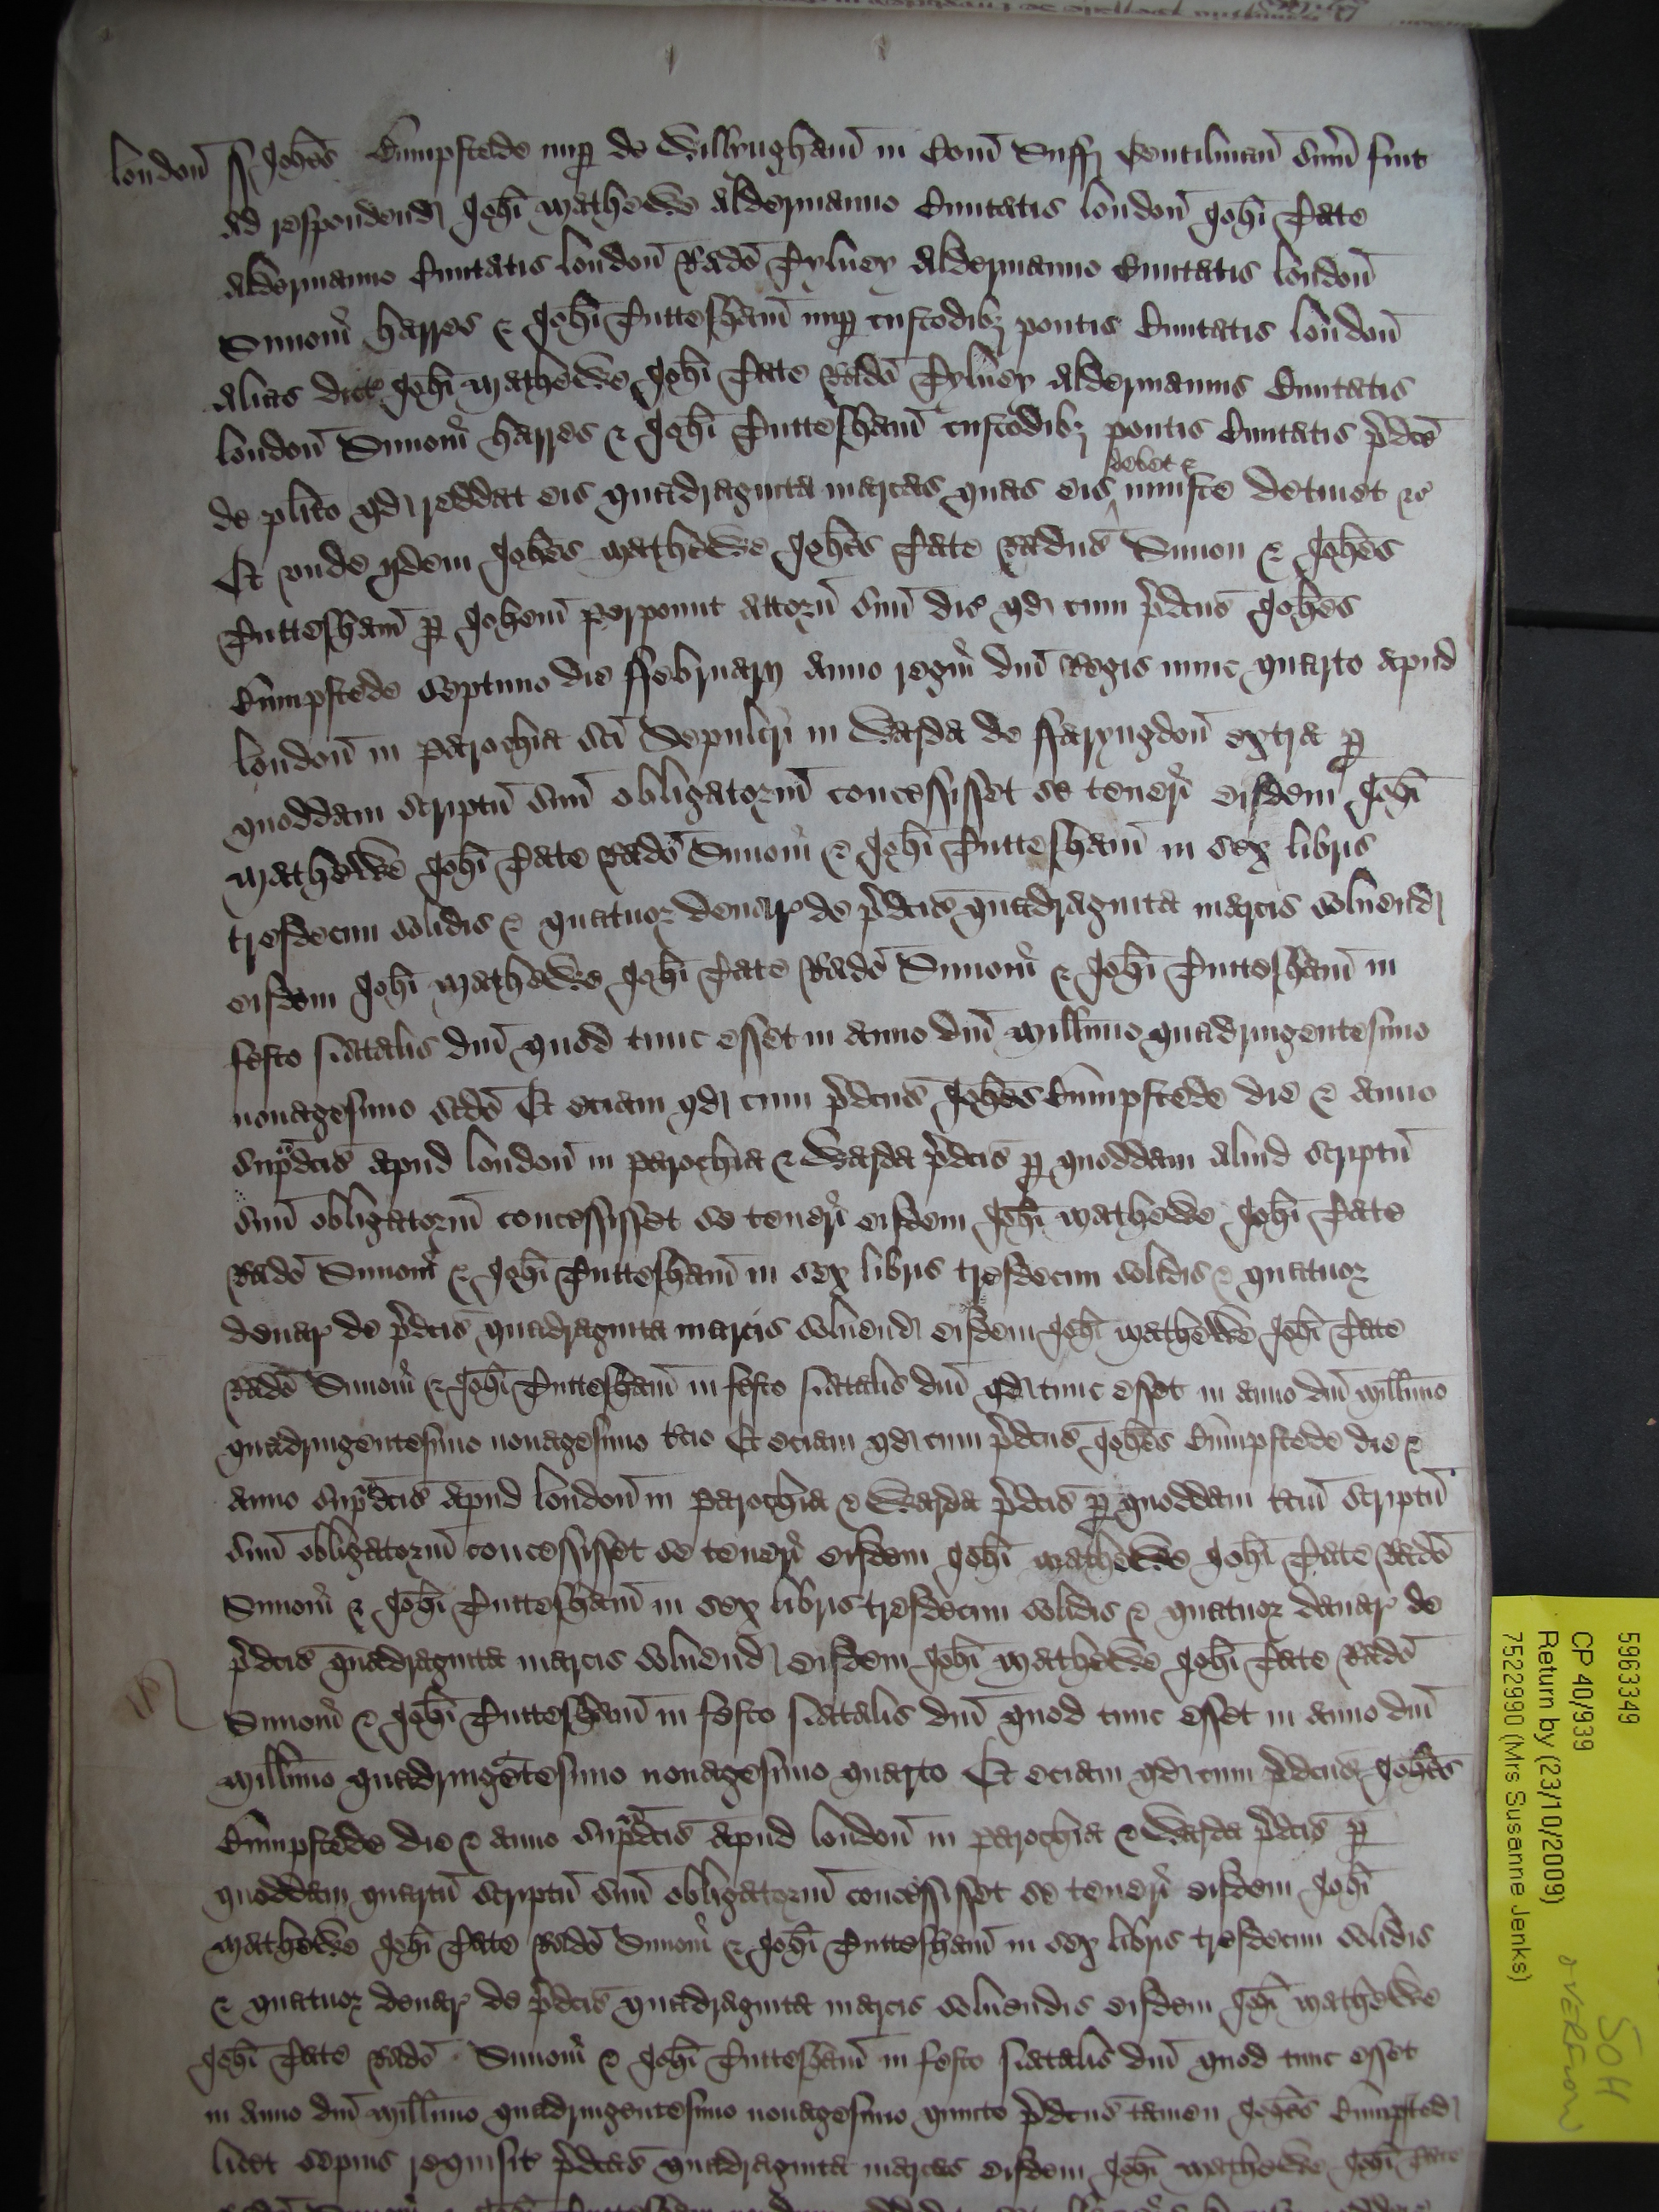 london ss Johes Cumpstede nup de Willyngham in Com Suff Gentilman sum fuit
ad respondend Johi Mathewe Aldermanno Civitatis london Johi Tate
Aldermanno Civitatis london Rado Tylney Aldermanno Civitatis london
Simoni harres & Johi Tuttesham nup custodibz pontis Civitatis london
alias dict Johi Mathewe Johi Tate Rado Tylney Aldermannis Civitatis
london Simoni harres & Johi Tuttesham custodibz pontis Civitatis pdce
de plito qd reddat eis quadraginta marcas quas eis debet & iniuste detinet &c
Et unde ijdem Johes Mathewe Johes Tate Radus Simon & Johes
Tuttesham p Johem Perpount attorn suu dic qd cum pdcus Johes
Cumpstede septimo die ffebruarij anno regni dni Regis nunc quarto apud
london in parochia sci Sepulcri in Warda de ffaryngdon extra p
quoddam scriptu suu obligatoriu concessisset se teneri eisdem Johi
Mathewe Johi Tate Rado Simoni & Johi Tuttesham in sex libris
tresdecim solidis & quatuor denar de pdcis quadraginta marcis solvend
eisdem Johi Mathewe Johi Tate Rado Simoni & Johi Tuttesham in
festo natalis dni quod tunc esset in anno dni millimo quadringentesimo
nonagesimo scdo Et eciam qd cum pdcus Johes Cumpstede die & anno
supadcis apud london in parochia & Warda pdcis p quoddam aliud scriptu
suu obligatoriu concessisset se teneri eisdem Johi Mathewe Johi Tate
Rado Simoni & Johi Tuttesham in sex libris tresdecim solidis & quatuor
denar de pdcis quadraginta marcis solvend eisdem Johi Mathewe Johi Tate
Rado Simoni & Johi Tuttesham in festo natalis dni qd tunc esset in anno dni millimo
quadringentesimo nonagesimo tcio Et eciam qd cum pdcus Johes Cumpstede die &
anno supadcis apud london in parochia & Warda pdcis p quoddam tciu scriptu
suu obligatoriu concessisset se teneri eisdem Johi Mathewe Johi Tate Rado
Simoni & Johi Tuttesham in sex libris tresdecim solidis & quatuor denar de
pdcis quadraginta marcis solvend eisdem Johi Mathewe Johi Tate Rado
Simoni & Johi Tuttesham in festo natalis dni quod tunc esset in anno dni
millimo quadringetesimo nonagesimo quarto Et eciam qd cum pdcus Johes
Cumpstede die & anno supadcis apud london in parochia & Warda pdcis p
quoddam quartu scriptu suu obligatoriu concessisset se teneri eisdem Johi
Mathewe Johi Tate Rado Simoni & Johi Tuttesham in sex libris tresdecim solidis
& quatuor denar de pdcis quadraginta marcis solvendis eisdem Johi Mathewe
Johi Tate Rado Simoni & Johi Tuttesham in festo natalis dni quod tunc esset
in anno dni millimo quadringentesimo nonagesimo quinto pdcus tamen Johes Cumpsted
licet sepius requisit pdcas quadraginta marcas eisdem Johi Mathewe Johi Tate
5963349
CP 40/939
Return by (23/10/2009)
7522990 (Mrs Susanne Jenks)
SOH
OVERFLOW